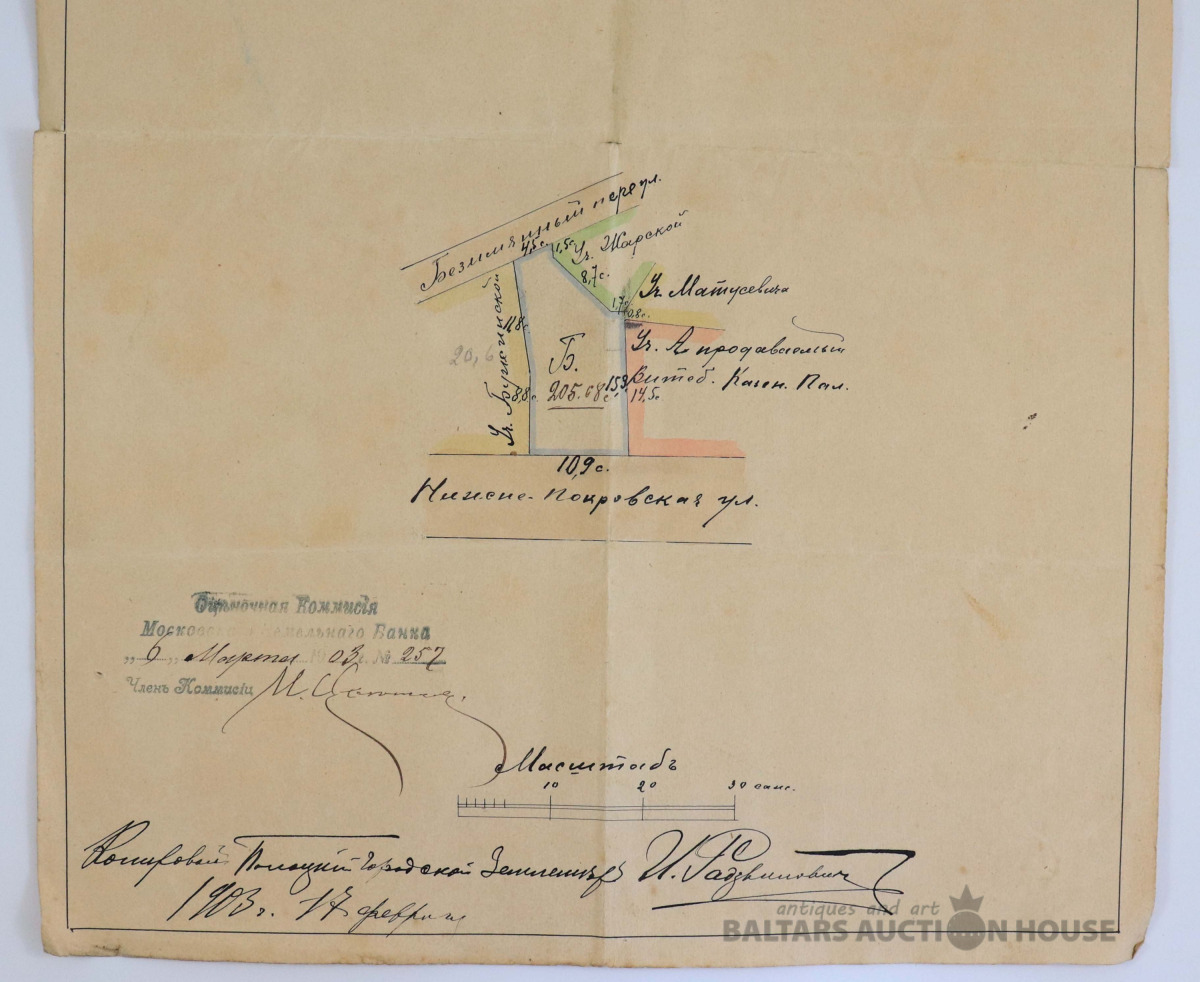 Безимянный переул.
4,5 с.
1,5 с.
Уч. Жарской
8,7 с.
1,7 с.
0,8 с.
Уч. Матусевича
11,8 с.
20,6
Уч.
Б.
Уч. А продаваемый
Витеб. Казен. Пал.
8,8 с.
205.68
15,3
14,5 с
10,9 с.
Нижне-Покровская ул.
?
Оцѣночная Коммисія
Московскаго Земельнаго Банка
„6„ Марта 1903 г. № 257
Членъ Коммисіи М.
Масштабъ
10 20 30 саж.
Копировал Полоцкій Городской Землемѣръ И. Радзвилович
1903 г. 17 февраля
antiques and art
BALTARS AUCTION HOUSE